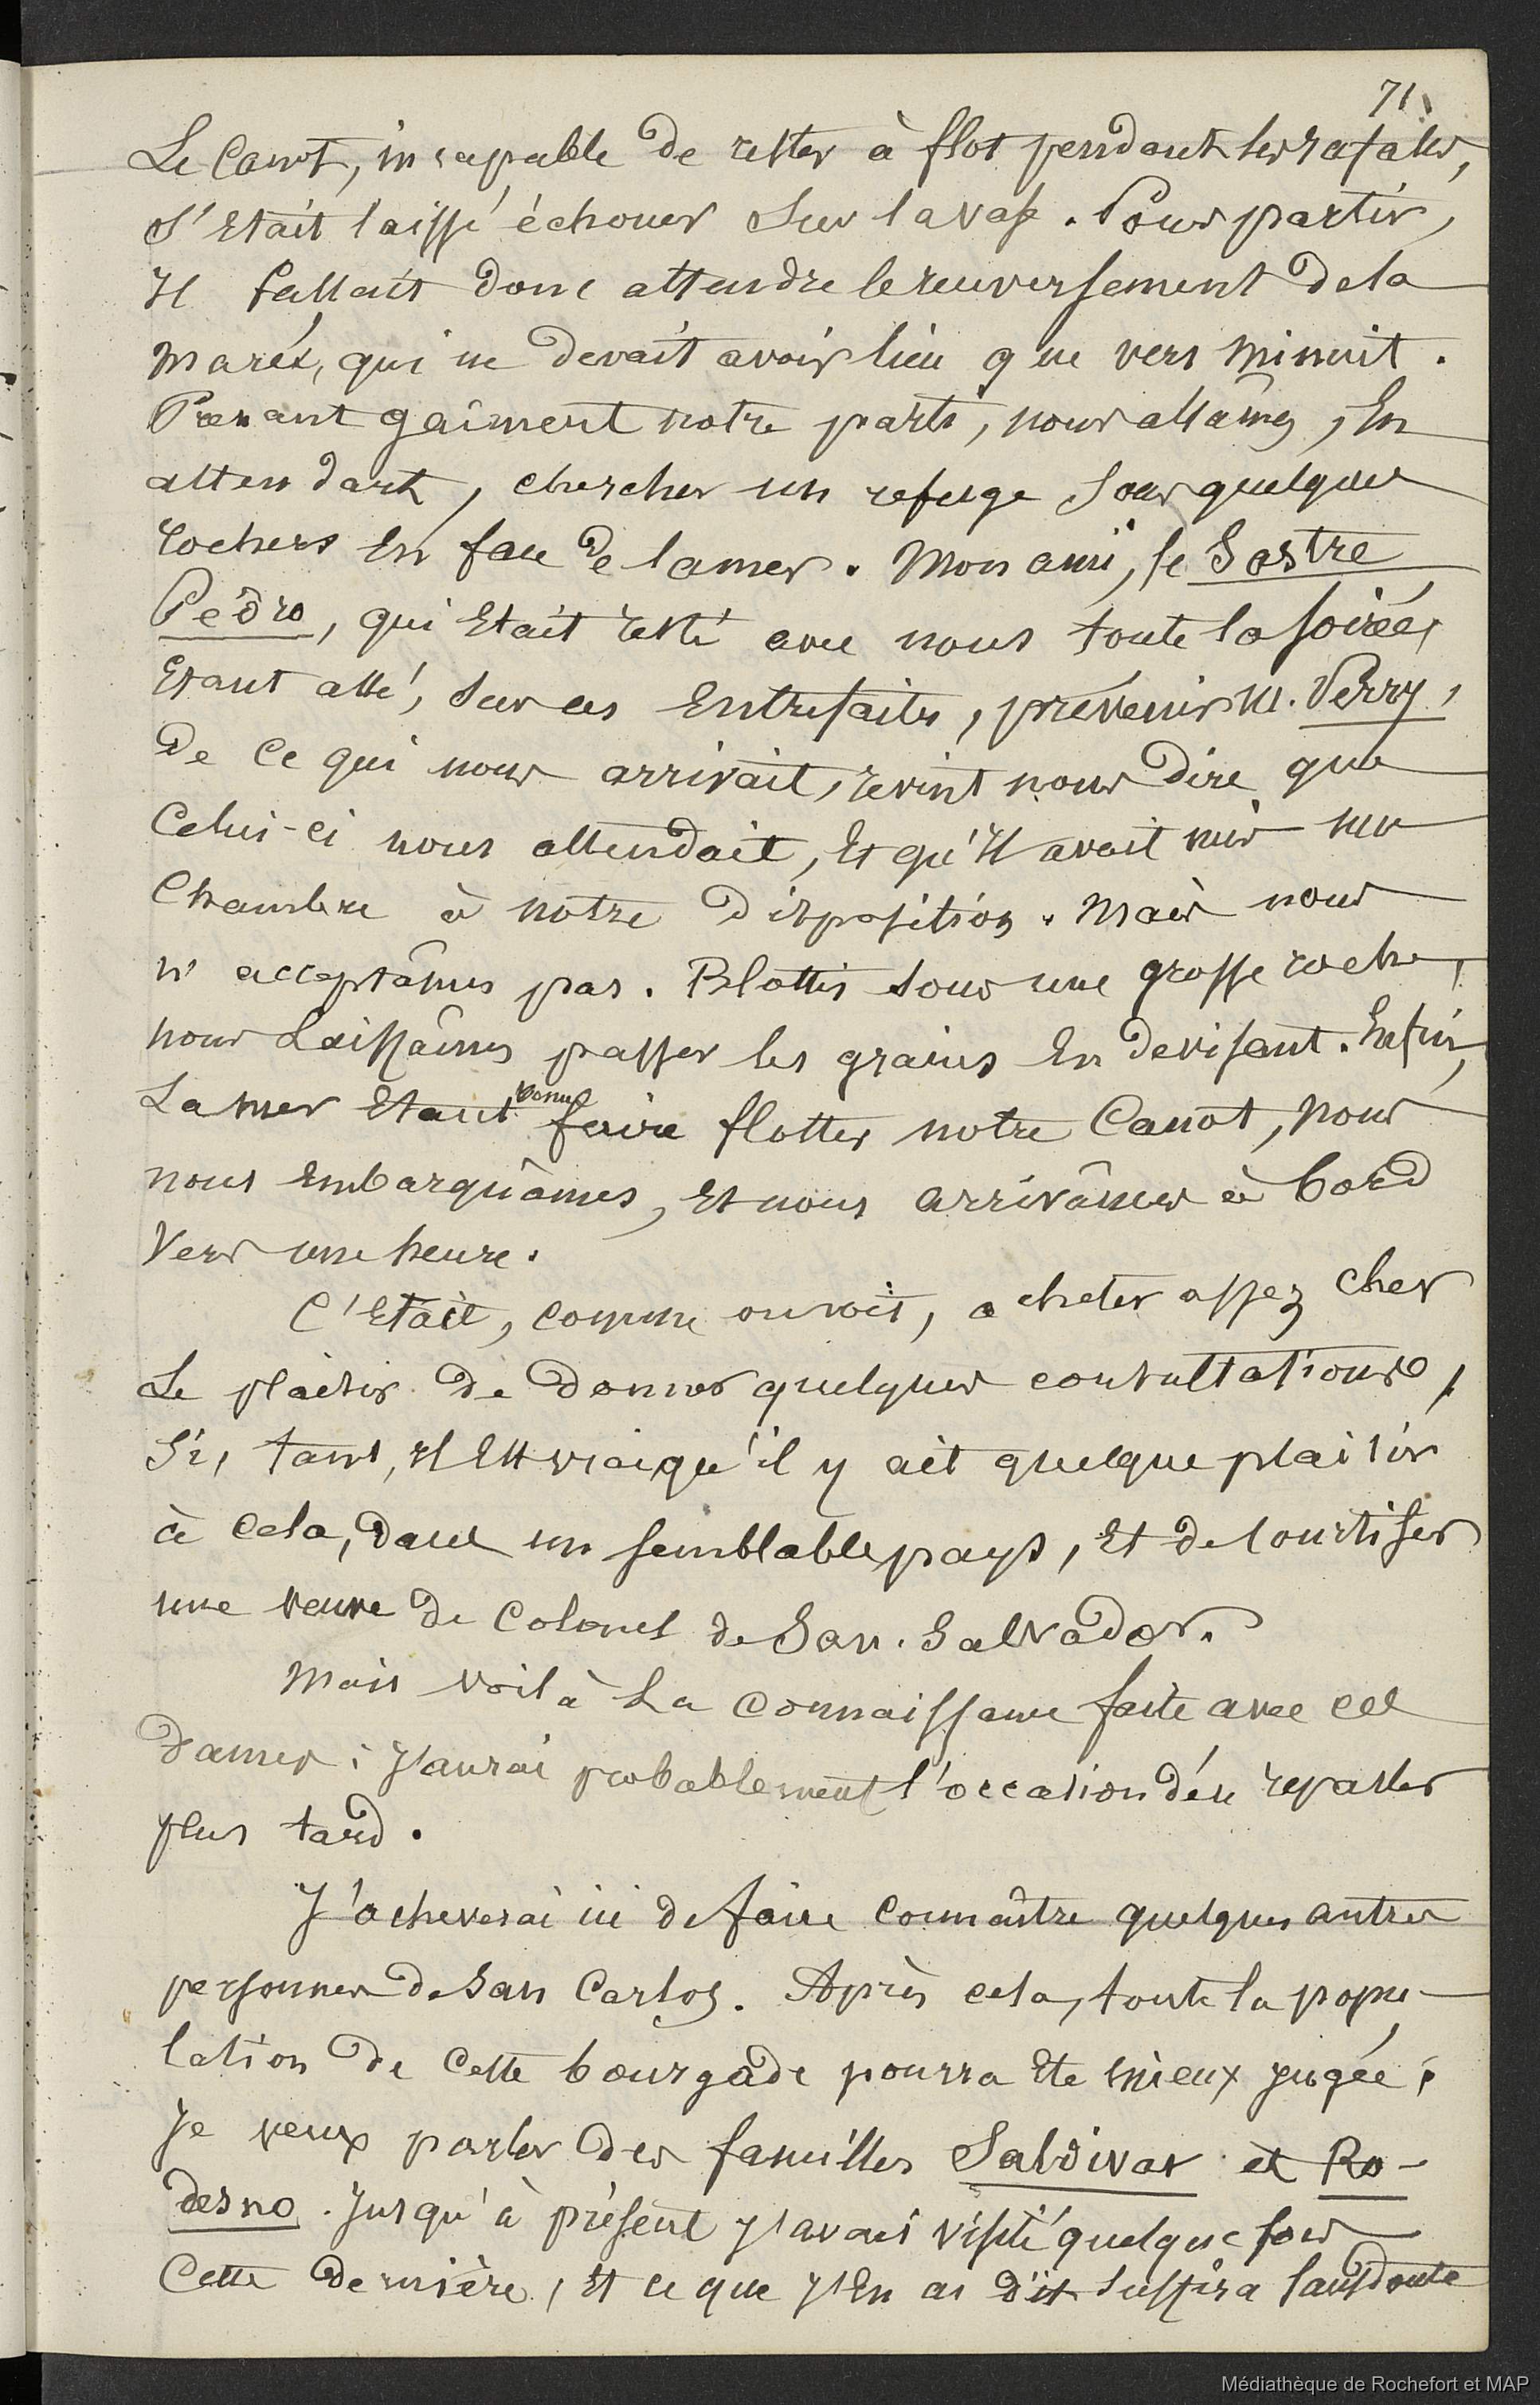 71
Le Canot, incapable de rester à flot pendant les rafales,
s'était laissé échouer sur la vase. Pour partir,
Il fallait donc attendre le renversement de la
marée, qui ne devait avoir lieu que vers minuit.
Prenant gaîment notre parti, nous allâmes, En
attendant, chercher un refuge sous quelques
rochers En face de la mer. Mon ami, le Sastre
Pedro, qui Etait resté avec nous toute la soirée,
Etant allé, sur ces Entrefaites, prévenir M. Verry,
De Ce qui nous arrivait, revint nous dire que
Celui-ci nous attendait, Et qu'Il avait mis une
Chambre à notre Disposition. Mais nous
n'acceptâmes pas. Blottis sous une grosse roche,
nous Laissâmes passer les grains En devisant. Enfin,
La mer Etant venue faire flotter notre Canot, nous
nous Embarquâmes, Et nous arrivâmes à bord
Vers une heure.
C'Etait, comme on voit, acheter assez cher
Le plaisir de donner quelques consultations,
Si, tant, Il Est vrai qu'il y ait quelque plaisir
à Cela, dans un semblable pays, Et de courtiser
une veuve de Colonel de San-Salvador.
Mais voilà La connaissance faite avec ces
dames ; J'aurai probablement l'occasion d'én reparler
plus tard.
J'acheverai ici de faire Connaître quelques autres
personnes de San Carlos. Après cela, toute la popu-
lation de Cette bourgade pourra Ete mieux jugée ;
Je veux parler des familles Saldivar et Ro-
desno. Jusqu'à présent J'avais visité quelque fois
Cette dernière, Et ce que J'En ai dit suffira sans doute
Médiathèque de Rochefort et MAP